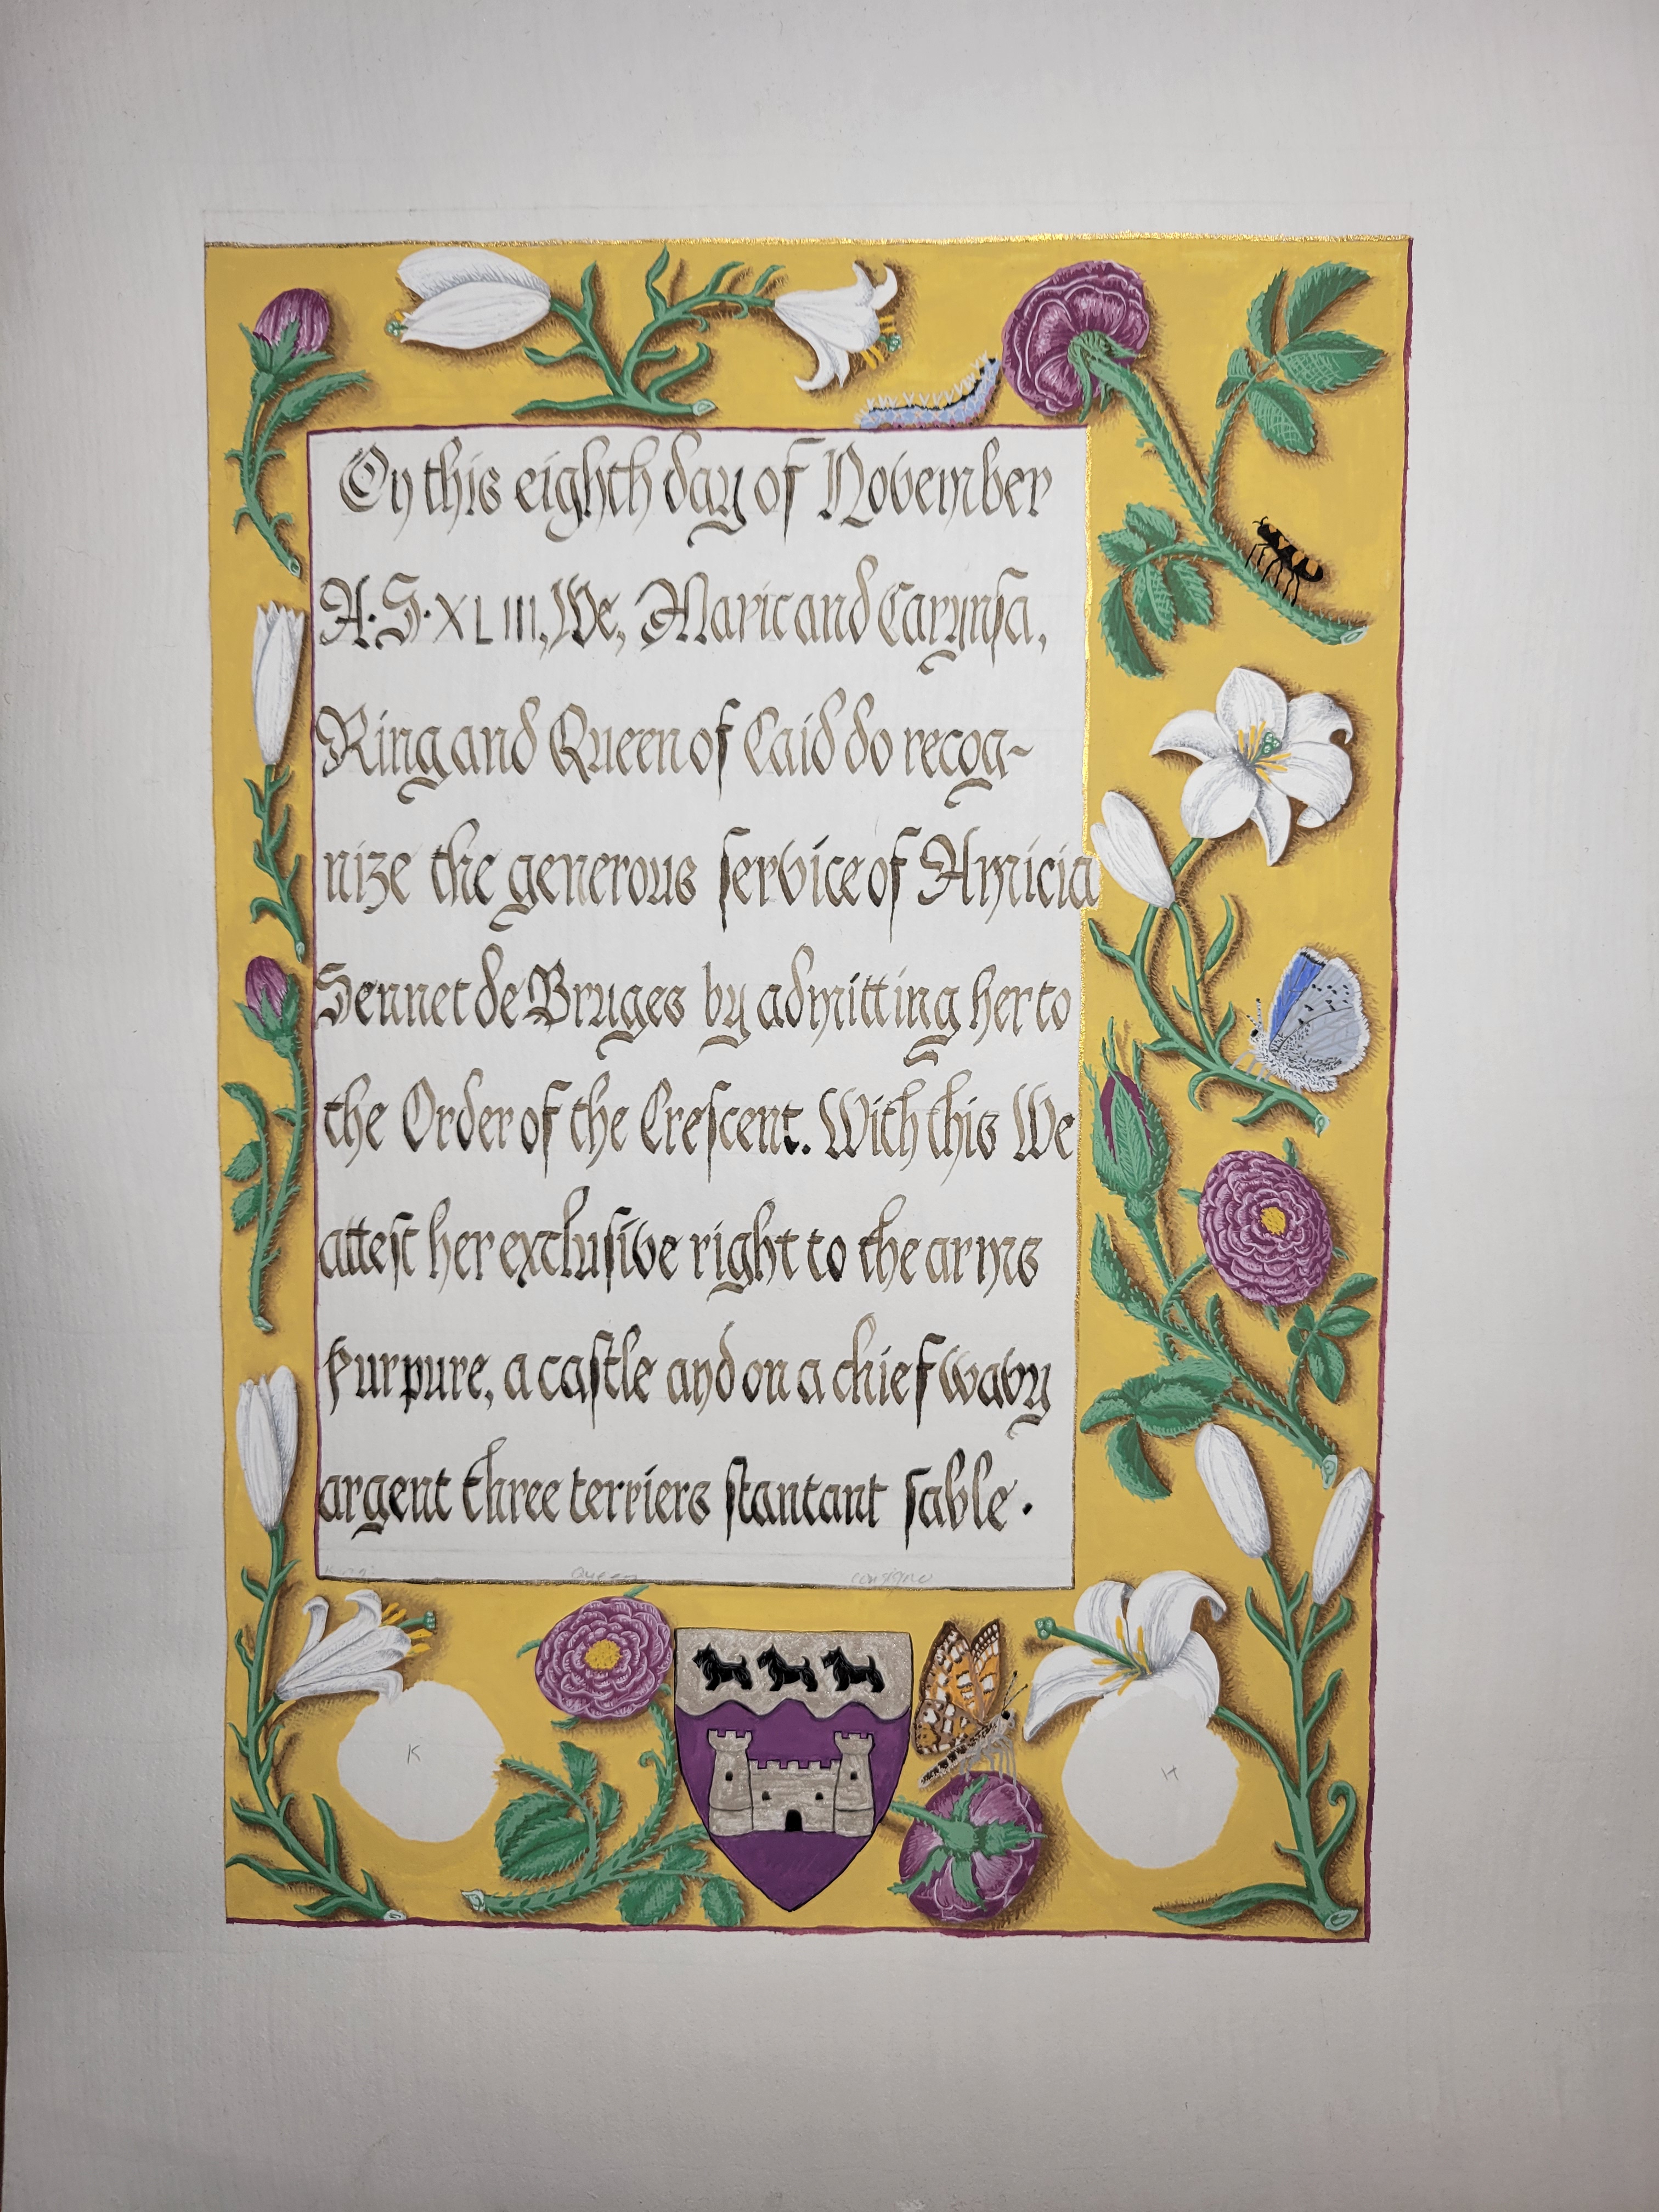 On this eighth day of November
A·S·XLIII, We, Maric and Carynsa,
King and Queen of Caid do recog~
nize the generous service of Amicia
Sennet de Bruges by admitting her to
the Order of the Crescent. With this We
attest her exclusive right to the arms
Purpure, a castle and on a chief wavy
argent three terriers stantant sable.
King Queen
K H